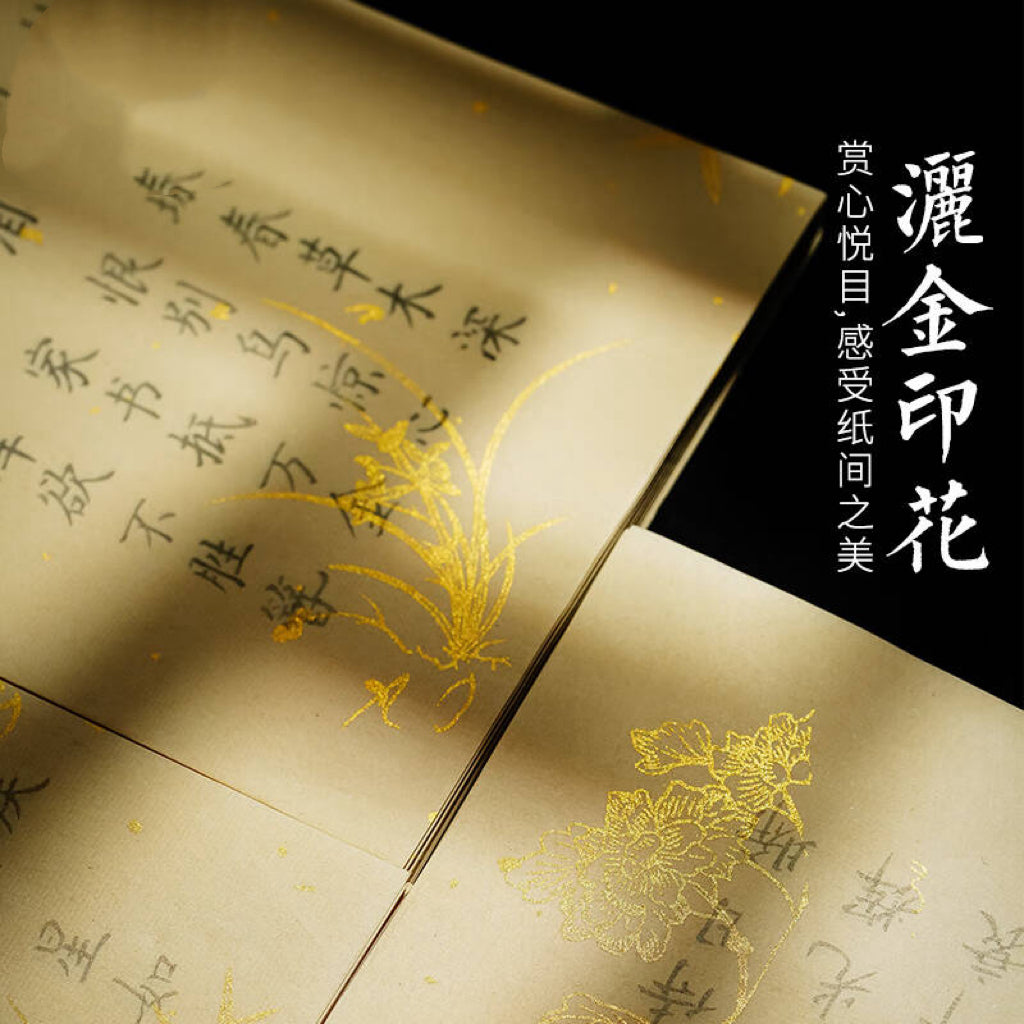 灑金印花
赏心悦目,感受纸间之美
春草木深
恨别鸟惊心
家书抵万金
欲不胜簪
星如
待日晞
光辉
衰